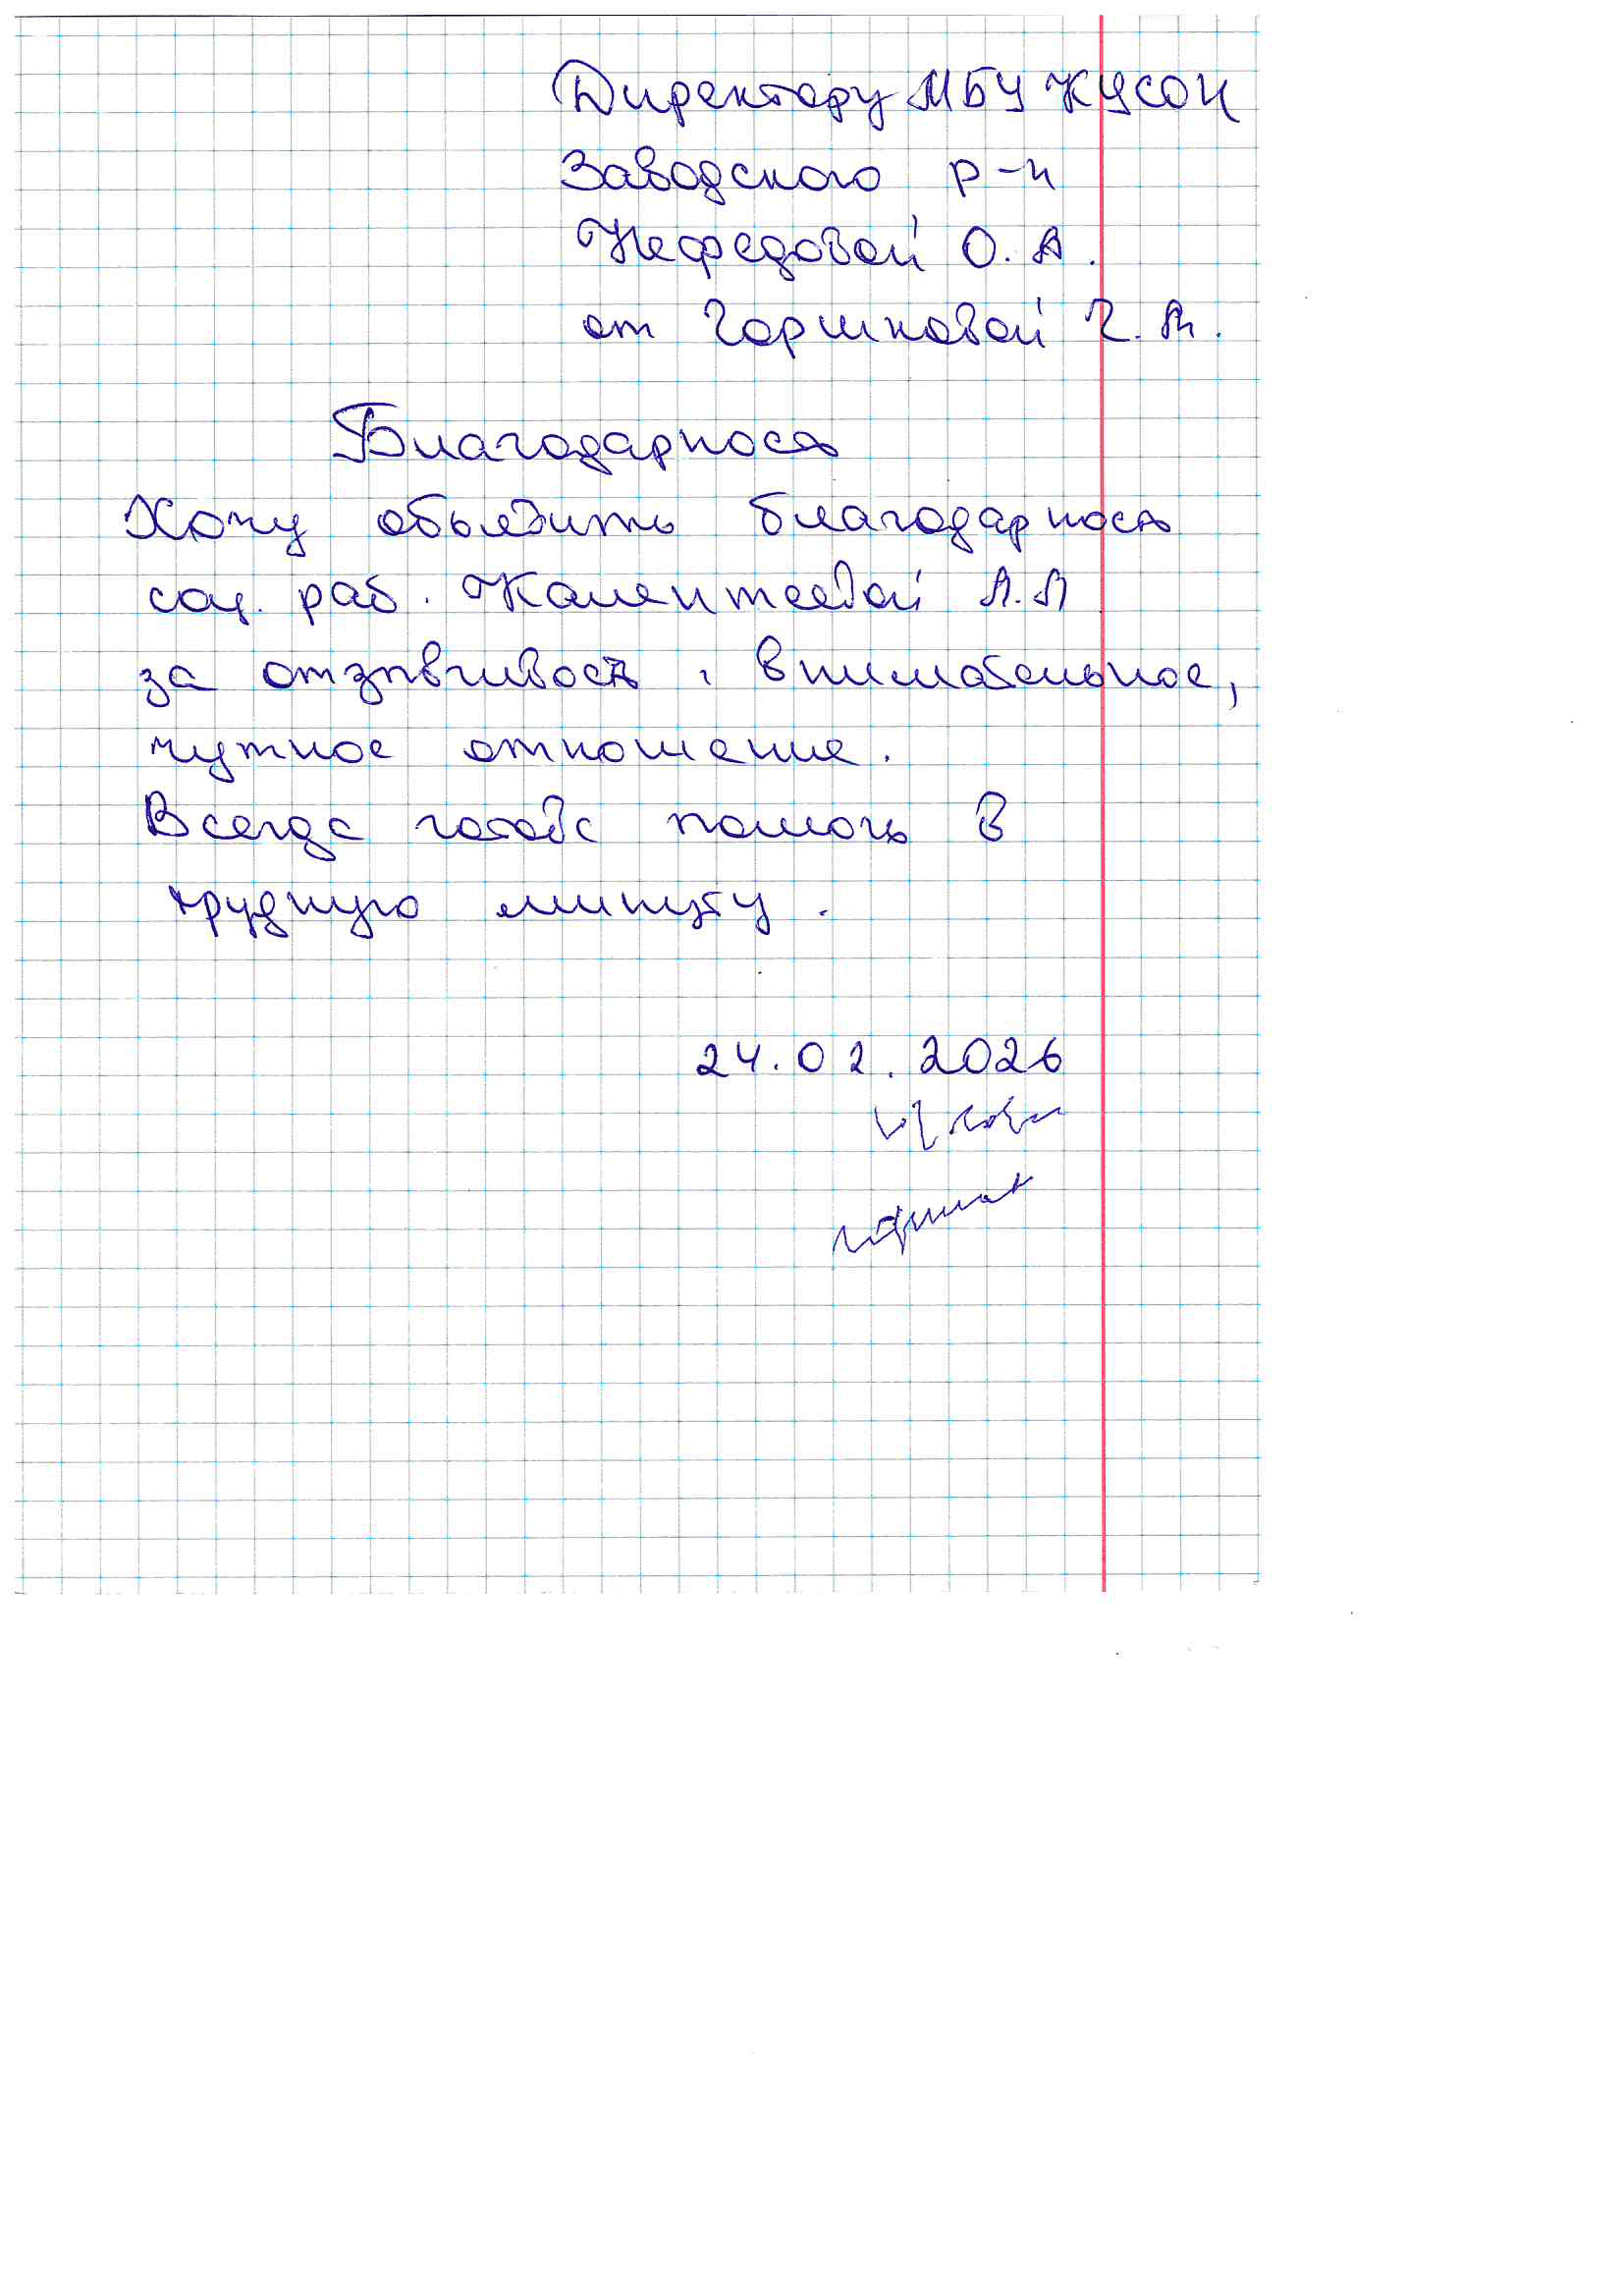 Директору МБУ КЦСОН
Заводского р-н
Нефедовой О. А.
от Горшковой Г. А.
Благодарность
Хочу объявить благодарность
соц. раб. Жалентеевой Л.Л
за отзывчивость, внимательное,
чуткое отношение.
Всегда готова помочь в
трудную минуту.
24.02.2026